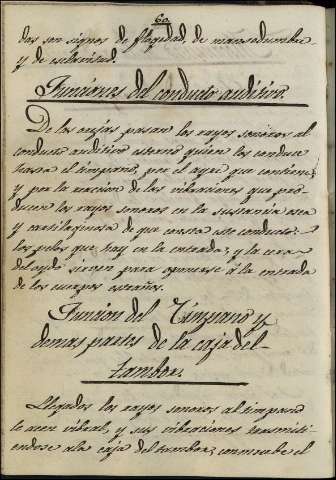 60
das son signos de flogedad, de mansedumbre
y de esclavitud.
Funciones del conducto auditivo.
De las orejas pasan los rayos sonoros al
conducto auditivo esterno quien los conduce
hasta el timpano, por el ayre que contiene;
y por la reaccion de las vibraciones que pro-
ducen los rayos sonoros en la sustancia osea
y cartilaginosa de que consta este conducto:
los pelos que hay en la entrada; y la cera
del oydo sirven para oponerse á la entrada
de los cuerpos estraños.
Funcion del Timpano y
demas partes de la caja del
tambor.
Llegados los rayos sonoros al timpano
le acen vibrar, y sus vibraciones trasmiti-
endose a la caja del tambor, conmueve el